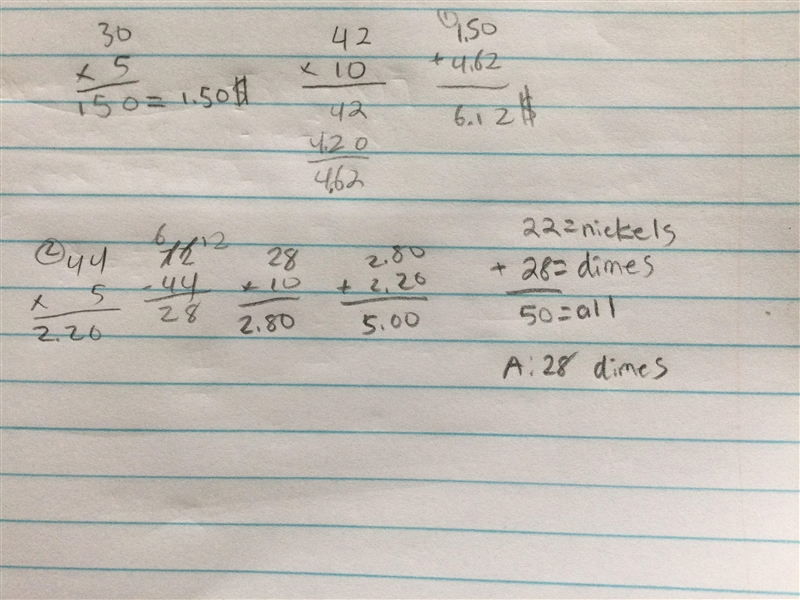 30
x 5
150 = 1.50$
42
x 10
42
4.20
4.62
① 1.50
+ 4.62
6.12$
② 44
x 5
2.20
6 12
72
- 44
28
28
x 10
2.80
2.80
+ 2.20
5.00
22=nickels
+ 28= dimes
50=all
A: 28 dimes